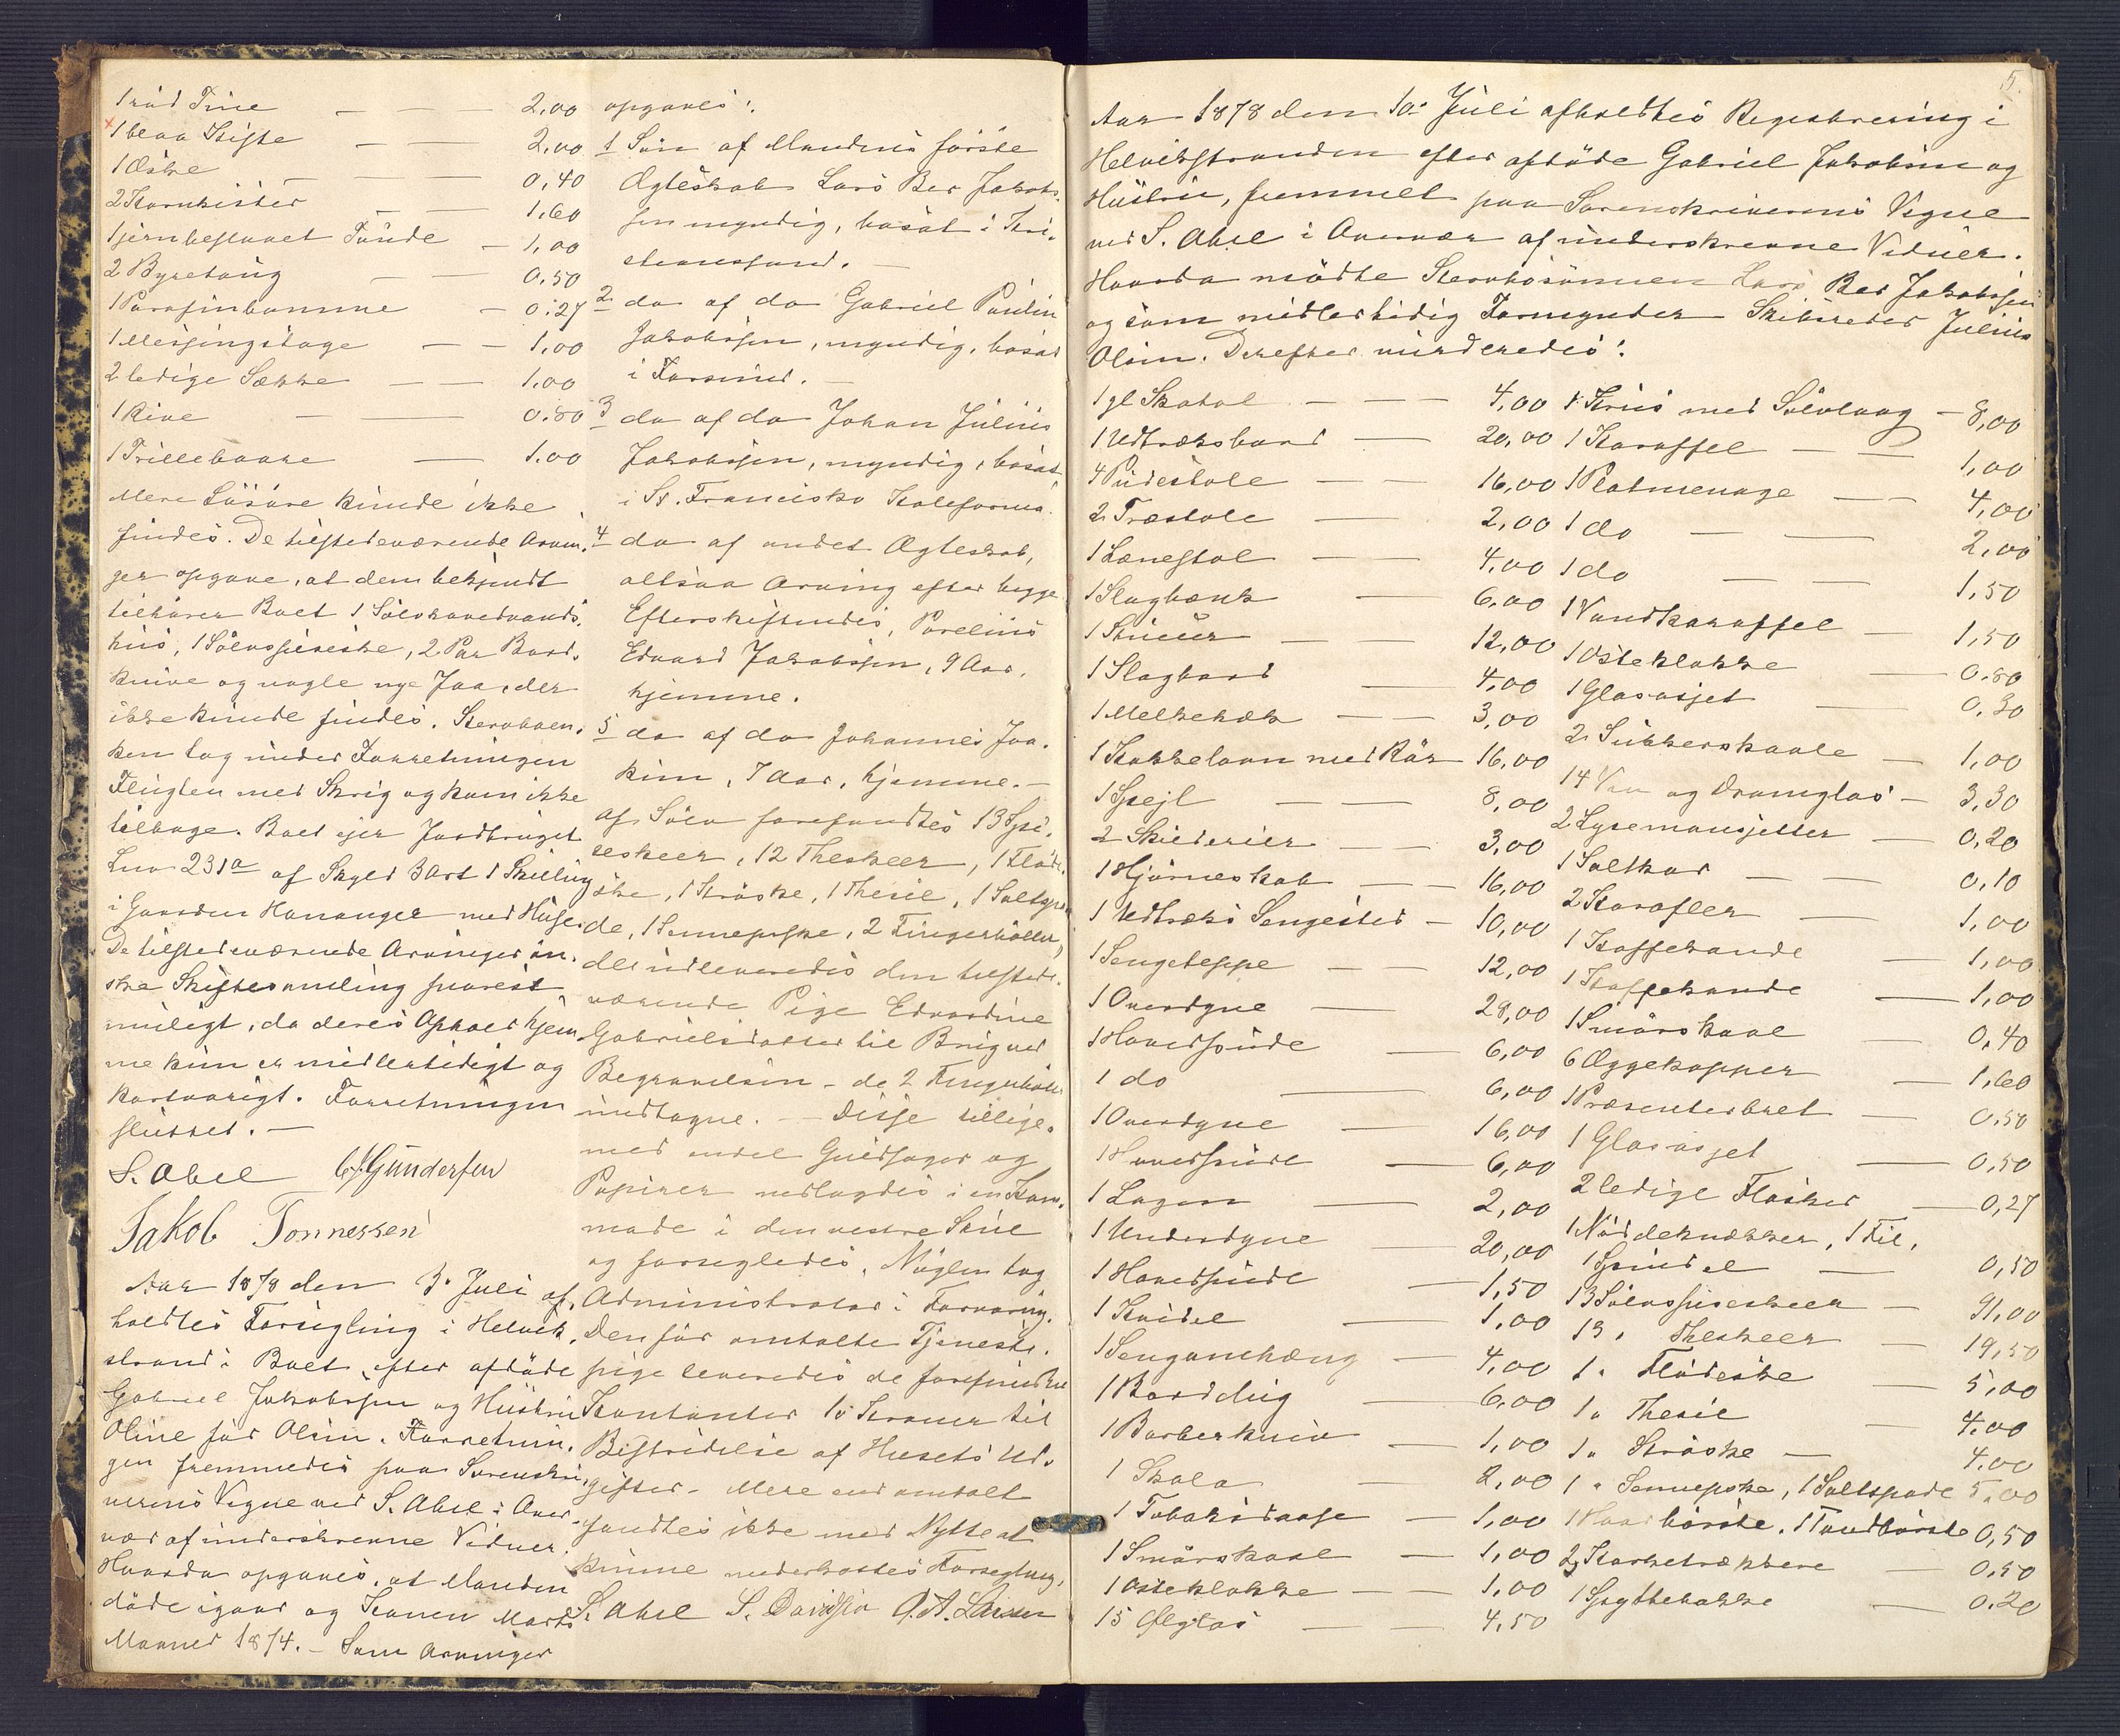 1 rød Tine — — 2,00
1 blaa Kiste — — 2,00
1 Æske — — — 0,40
2 Kornkister — — 1,60
1 jernbeslaaet Tønde — 1,00
2 Byretøug — — 0.50
1 Parafinkanne — 0.27
1 Messingstage — — 1,00
2 ledige Sække — — 1.00
1 Rive — — 0.80
1 Trillebaare — 1.00
Mere Løsøre kunde ikke
findes. De tilstedeværende Arvin-
ger opgave, at dem bekjendt
tilhører Boet 1 Sølvhovedvands-
hus, 1 Sølvspiseske, 2 Par Bord-
knive og nogle nye , der
ikke kunde findes. Stervboen-
ken tog under Forretningen
Flugten med Skrig og kom ikke
tilbage. Boet ejer Jordbruget
Lno 231a af Skyld 3 Ort 1 Skilling
i Gaarden Hananger med Huse.
De tilstedeværende Arvinger øn-
ske Skiftesamling snarest
muligt, da deres Ophold hjem-
me kun er midlertidigt og
kortvarigt. Forretningen
sluttet. —
S. Abel G. Gundersen
Jakob Tonnessen
Aar 1878 den 3. Juli af-
holdtes Forsegling i Helvik-
strand i Boet efter afdøde
Gabriel Jakobsen og Hustru
Oline før Olsen. Forretnin-
gen fremmedes paa Sorenskri-
verens Vegne ved S. Abel i Over-
vær af underskrevne Vidner.
Hvorda opgaves, at Manden
døde igaar og Konen Marts
Maaned 1874. — Som Arvinger
opgaves:
1 Søn af Mandens første
Ægteskab Lars Ber Jakob-
sen myndig, bosat i Kri-
stianssund. —
2 do af do Gabriel Paulin
Jakobsen, myndig, bosat
i Farsund. —
3 do af do Johan Julius
Jakobsen, myndig, bosat
i St. Francisko Kaleforni.
4 do af andet Ægteskab,
altsaa Arving efter begge
Efterskiftendes, Parelius
Edvard Jakobsen, 9 Aar,
hjemme.
5 do af do Johannes Joa-
kim, 7 Aar, hjemme. —
Af Sølv forefandtes 13 Spi-
seskeer, 12 Theskeer, 1 Fløde-
ske, 1 Strøske, 1 Thesie, 1 Saltspa-
de, 1 Sennepske, 2 Fingerbøller,
der udleveredes den tilstede-
værende Pige Edvardine
Gabrielsdatter til Brug ved
Begravelsen – de 2 Fingerbøller
undtagne. — Disse tillige-
med endel Guldsager og
Papirer nedlagdes i en Kom-
mode i den vestre Stue
og forsegledes. Nøglen tog
Administrator i Forvaring.
Den før omtalte Tjeneste-
pige leveredes de forefundne
Kontanter 10 Kroner til
Bestridelse af Husets Ud-
gifter. Mere end omtalt
fandtes ikke med Nytte at
kunne underkastes Forsegling.
S. Abel S. Davidsen A. A. Larsen
5.
Aar 1878 den 10. Juli afholdtes Registrering i
Helvikstranden efter afdøde Gabriel Jakobsen og
Hustru, fremmet paa Sorenskriverens Vegne
ved S. Abel i Overvær af underskrevne Vidner.
Hvorda mødte Stervbosønnen Lars Ber Jakobsen
og som midlertidig Formynder Skibsreder Julius
Olsen. Derefter vurderedes:
1 gl Skatol — — — 4,00
1 Udtræksbord — 20,00
4 Pudestole — — 16,00
2 Træstole — 2,00
1 Lænestol — — 4,00
1 Slagbænk — 6,00
1 Skuur — — 12,00
1 Slagbord — 4,00
1 Melkehæk — — 3,00
1 Kakkelovn med Rør — 16,00
1 Spejl — — 8,00
2 Skilderier — — 3,00
1 Hjørneskab — — 16,00
1 Udtræks Sengested — 10,00
1 Sengeteppe — — 12,00
1 Overdyne — 28,00
1 Hovedpude — 6,00
1 do — 6,00
1 Overdyne — 16,00
1 Hovedpude — 6,00
1 Lagen — 2,00
1 Underdyne — 20,00
1 Hovedpude — 1,50
1 Kuddel — 1,00
1 Sengomhæng — 4,00
1 Borddug — 6,00
1 Barberkniv — 1,00
1 Skola — 2,00
1 Tobaksdaase — 1,00
1 Smørskaal — 1,00
1 Osteklokke — — 1,00
15 Ølglas — — 4,50
1 Krus med Sølvlaag — 8,00
1 Karaffel — — 1,00
1 Platmenage — — 4,00
1 do — — 2,00
1 do — — 1,50
1 Vandkaraffel — 1,50
1 Osteklokke — 0.80
1 Glasasjet — 0,30
2 Sukkerskaale — 1,00
14 Vin og Dramglas — 3,30
2 Lysemansjetter — 0,20
1 Saltkar — — 0,10
2 Karafler — 1,00
1 Kaffekande — 1,00
1 Kaffekande — 1,00
1 Smørskaal — 0,40
6 Æggekopper — 1,60
1 Præsenterbret — 0,50
1 Glasasjet — 0,50
2 ledige Flasker — 0,27
1 Nøddeknækker, 1 Fil,
1 Spindel — 0,50
13 Sølvspiseskeer — 91,00
13 " Theskeer — 19,50
1 " Flødeske — 5,00
1 " Thesie — 4.00
1 " Strøske — 4.00
1 " Sennepske, 1 Saltspade 5.00
1 Haarbørste, 1 Tandbørste 0,50
2 Korketrækkere — 0.50
1 Spyttebakke — 0.20